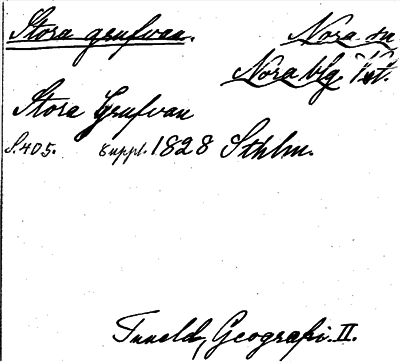 Stora grufvan. Nora sn
Nora blg. Vst.
Stora Grufvan
S.405. suppl. 1828 Sthlm.
Tuneld, Geografi. II.